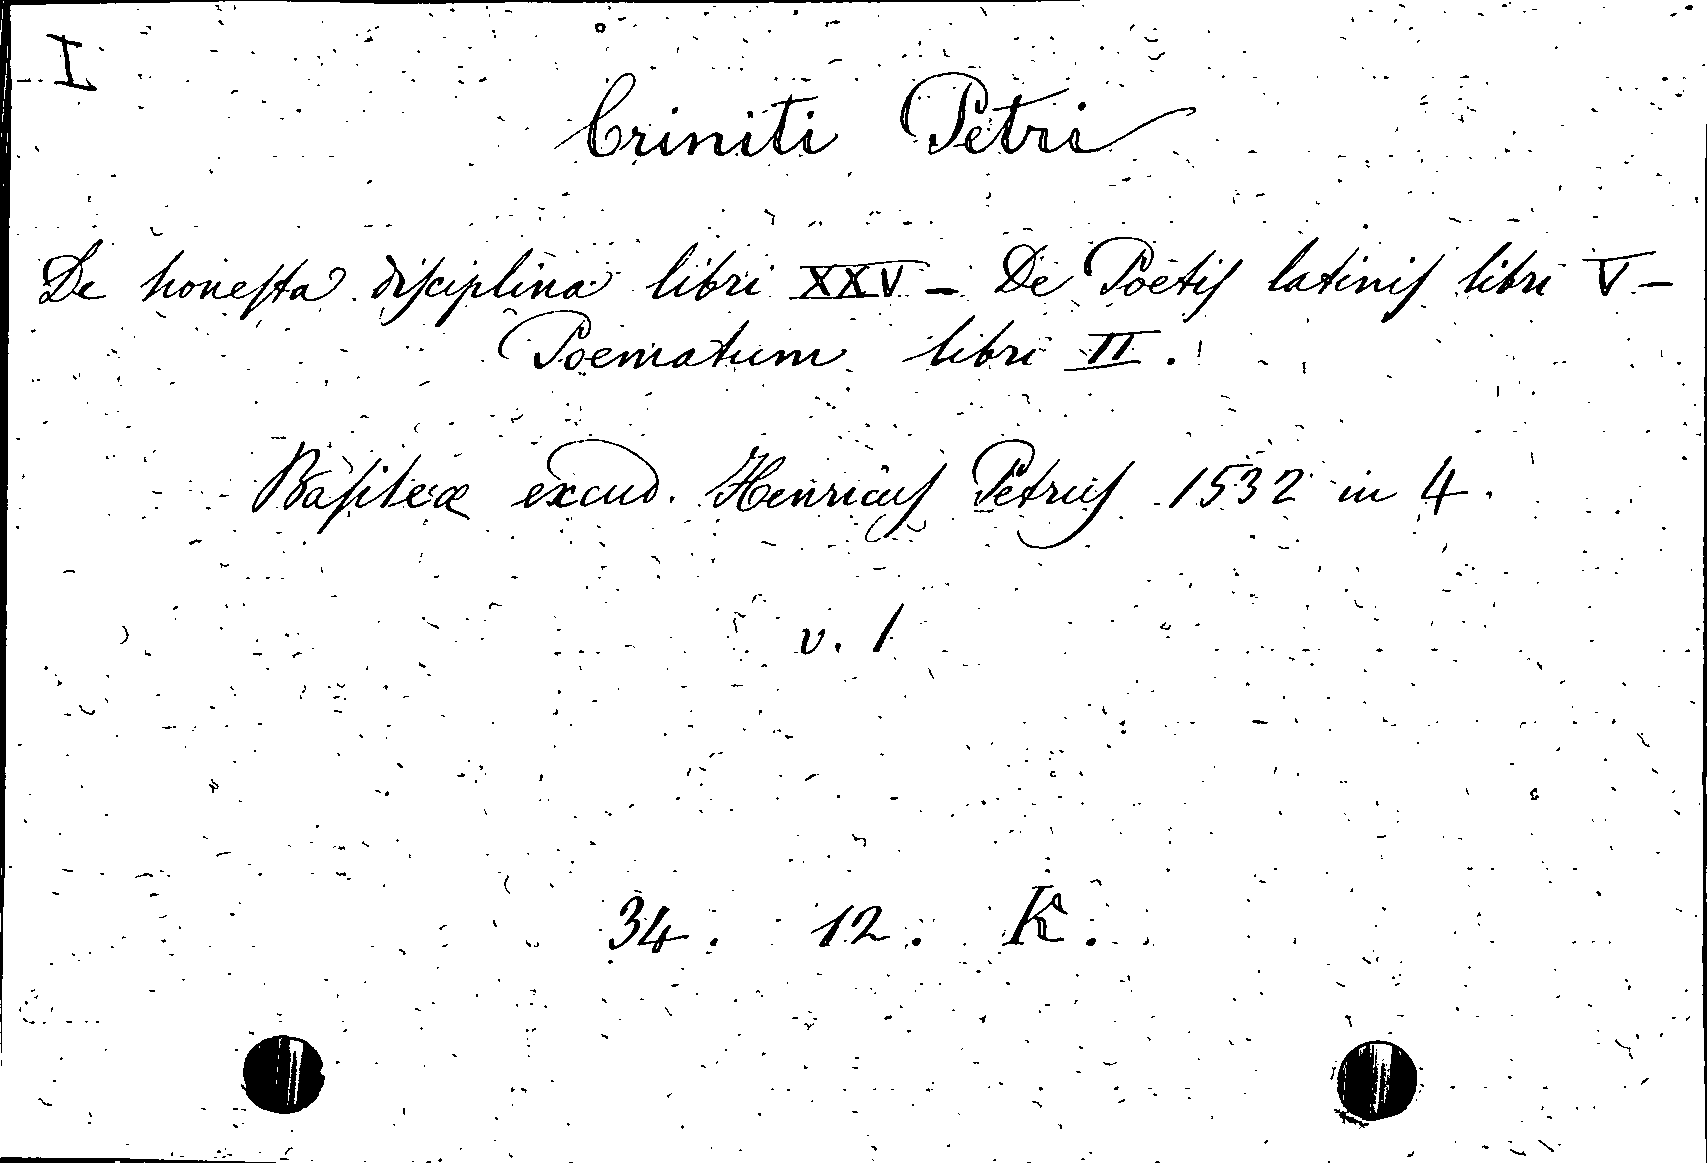 I
Criniti Petri
De honesta disciplina libri XXV - De Poetis latinis libri V -
Poematum libri II.
Basileæ excud. Henricus Petrus 1532 in 4.
v. 1
34. 12. K.